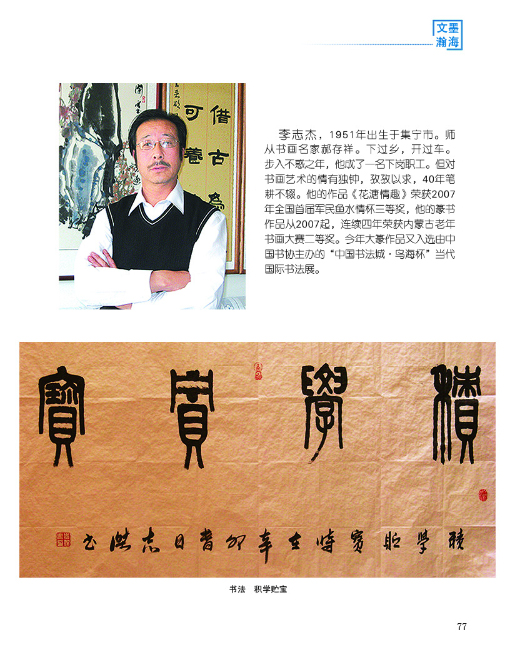 文墨
瀚海
借古為
可養
李志杰，1951年出生于集宁市。师
从书画名家郝存祥。下过乡，开过车。
步入不惑之年，他成了一名下岗职工。但对
书画艺术的情有独钟，孜孜以求，40年笔
耕不辍。他的作品《花溏情趣》荣获2007
年全国首届军民鱼水情杯三等奖，他的篆书
作品从2007起，连续四年荣获内蒙古老年
书画大赛二等奖。今年大篆作品又入选由中
国书协主办的“中国书法城·乌海杯”当代
国际书法展。
積學貯寶
積學貯寶時在辛卯春日志杰书
书法　积学贮宝
77